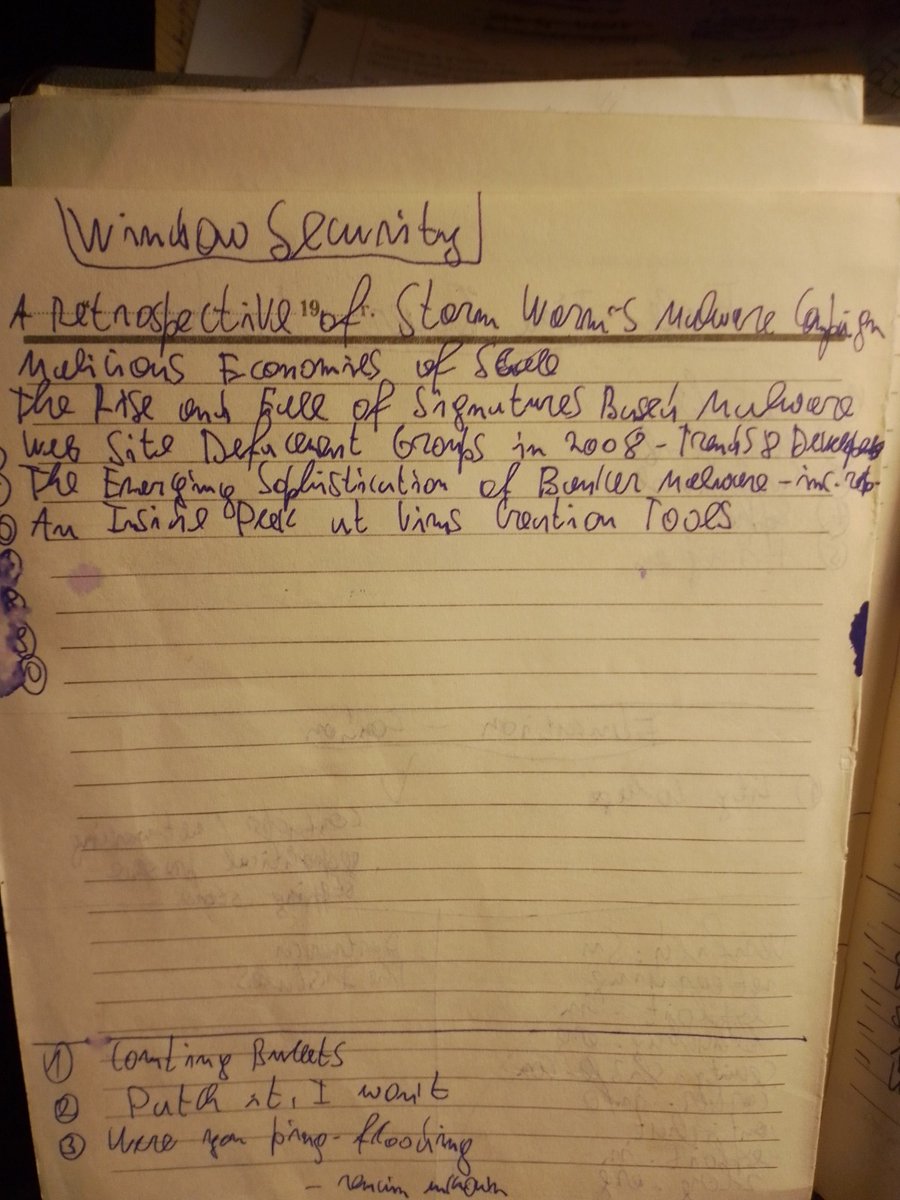 Window Security
A Retrospective of Storm Worm's Malware Campaign
19 г.
Malicious Economies of Scale
The Rise and Fall of Signatures Based Malware
Web Site Defacement Groups in 2008 - Trends &
The Emerging Sophistication of Banker Malware - inc.
An Inside Peek at Virus Creation Tools
1 Counting Bullets
2 Patch it, I won't
3 Were you ping-flooding